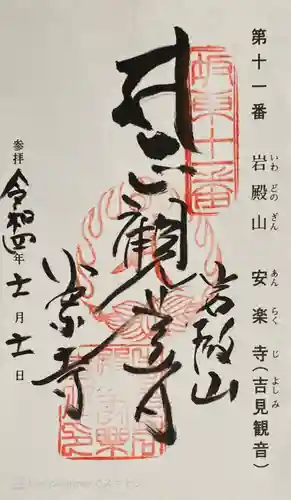 第十一番　岩殿山　安楽寺(吉見観音)
いわ どの ざん あん らく じ よしみ
坂東十一番
岩殿山
觀世音
安楽寺
参拝 令和四年十一月十一日